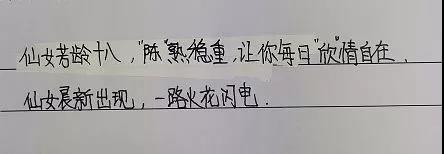 仙女芳龄十八,"陈"熟稳重,让你每日"欣"情自在.
仙女晨新出现,一路火花闪电.